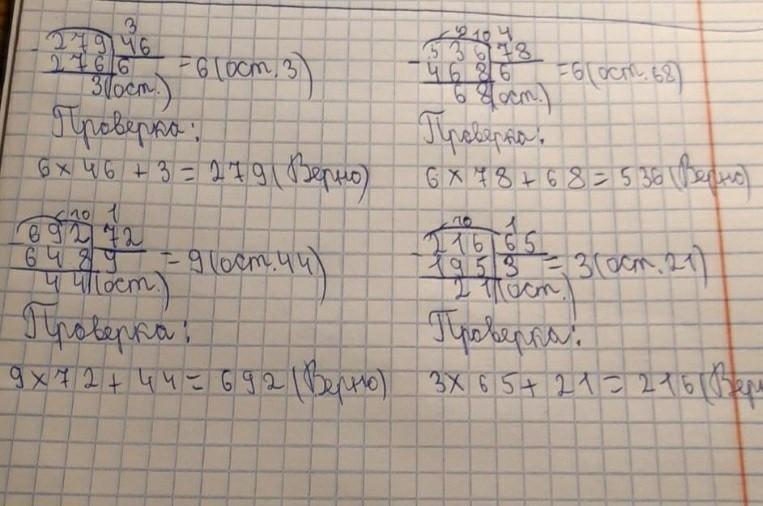 3
279 46
276 6 = 6(ост. 3)
3(ост.)
Проверка:
6 × 46 + 3 = 279 (Верно)
10 4
536 78
468 6 = 6(ост. 68)
68(ост.)
Проверка:
6 × 78 + 68 = 536 (Верно)
10 1
692 72
648 9 = 9(ост. 44)
44(ост.)
Проверка:
9 × 72 + 44 = 692 (Верно)
10 1
216 65
195 3 = 3(ост. 21)
21(ост.)
Проверка:
3 × 65 + 21 = 216 (Верн